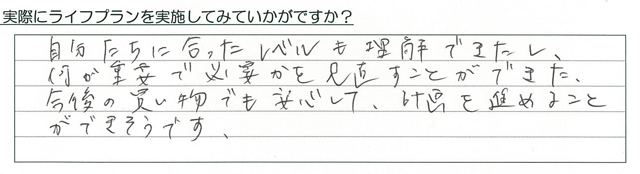 実際にライフプランを実施してみていかがですか？
自分たちに合ったレベルも理解できたし、
何が重要で必要かを見直すことができた、
今後の買い物でも安心して、計画を進めること
ができそうです、